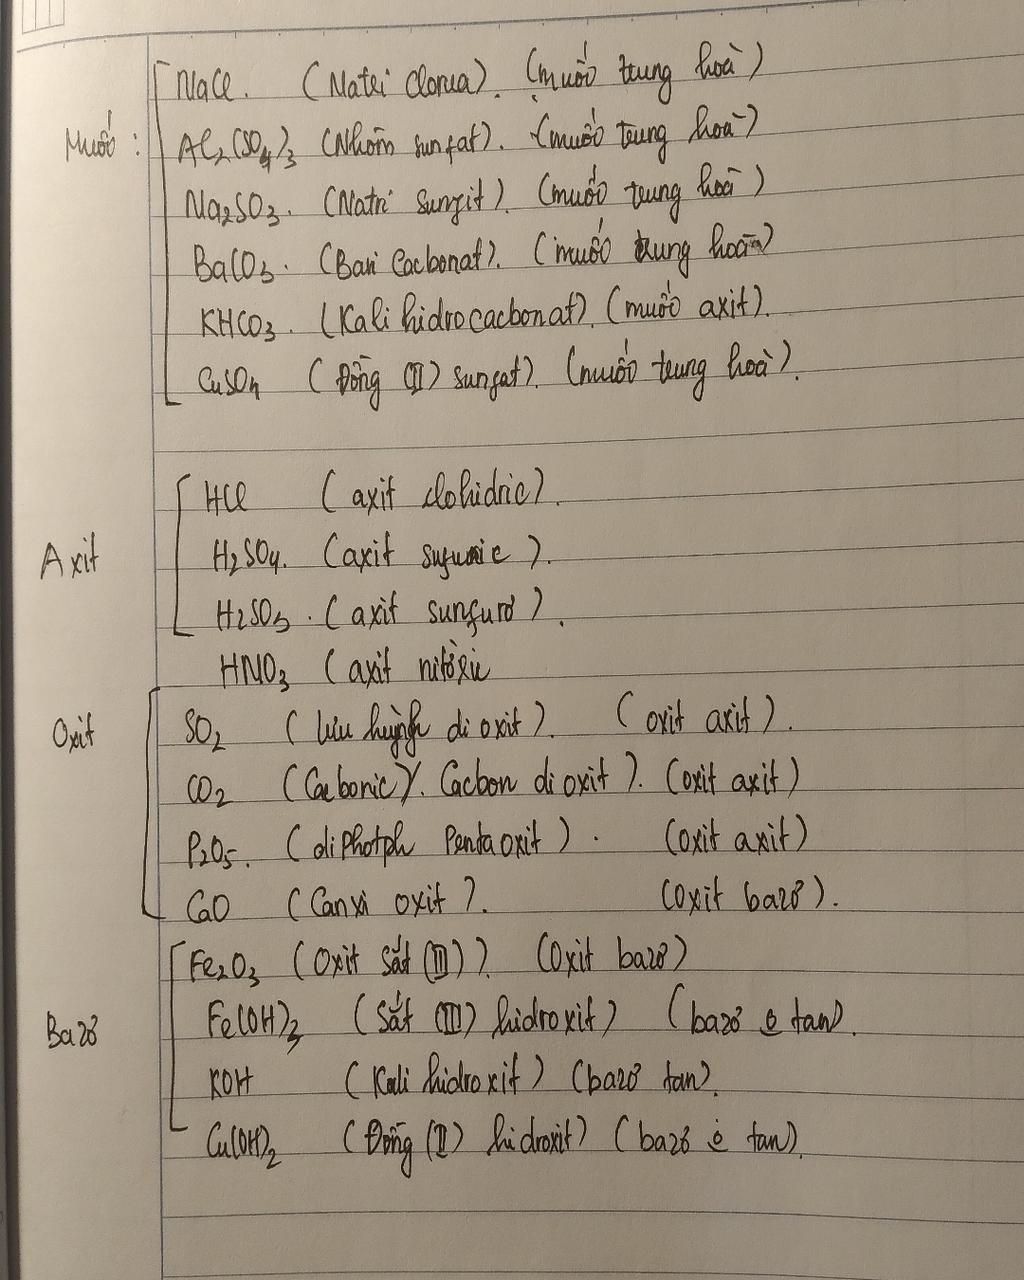 NaCl. (Natri clorua). (muối trung hoà)
Muối : Al2(SO4)3 (Nhôm sunfat). (muối trung hoà)
Na2SO3. (Natri Sunfit). (muối trung hoà)
BaCO3. (Bari Cacbonat). (muối trung hoà)
KHCO3. (Kali hidrocacbonat). (muối axit).
CuSO4 (Đồng (II) sunfat). (muối trung hoà).
HCl (axit clohidric).
Axit H2SO4. (axit sufuric).
H2SO3. (axit sunfurơ).
HNO3 (axit nitơric
Oxit SO2 (lưu huỳnh đi oxit). (oxit axit).
CO2 (Cacbonic). Cacbon đi oxit). (oxit axit)
P2O5. (điPhotpho Pentaoxit). (oxit axit)
CaO (Canxi oxit). (oxit bazơ).
Fe2O3 (Oxit sắt (III)). (Oxit bazơ)
Bazơ Fe(OH)3 (Sắt (III) hidroxit) (bazơ o tan).
KOH (Kali hidroxit) (bazơ tan).
Cu(OH)2 (Đồng (II) hidroxit) (bazơ o tan).